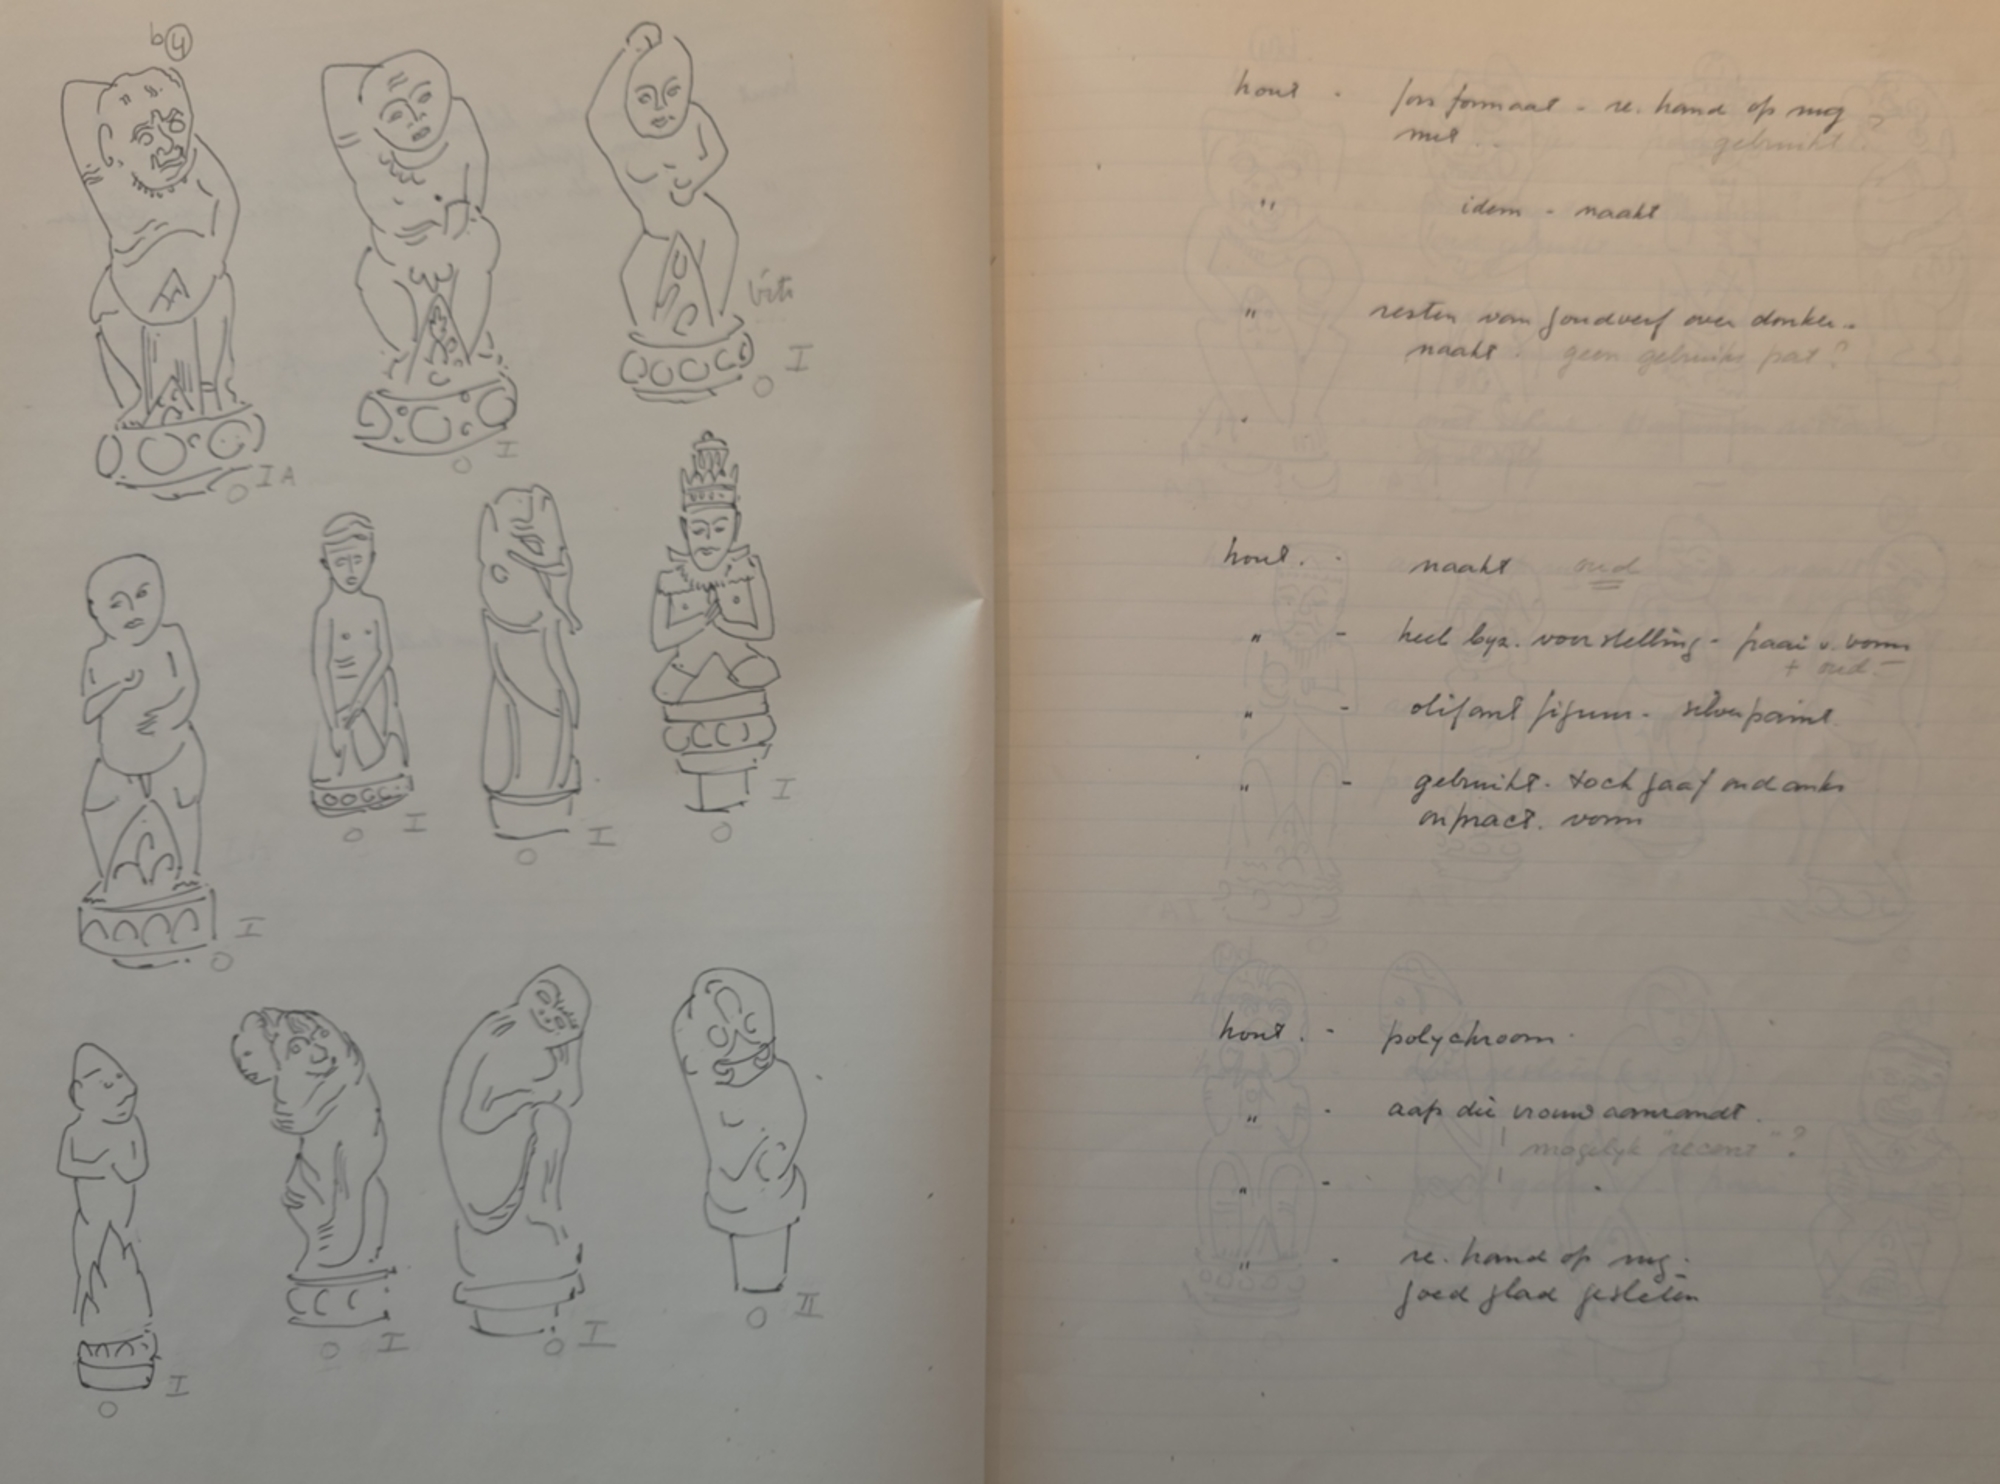 b 4
IA
O
I
O
viti
I
O
I
O
I
O
I
O
I
O
I
O
I
O
I
O
II
O
hout - fors formaat - re. hand op rug
met .. gebruikt?
" idem - naakt
" resten van goudverf over donker -
naakt. geen gebruiks pat?
hout. - naakt oud
" - heel byz. voorstelling - fraai v. vorm
+ oud -
" - olifant figuur - silverpaint
" - gebruikt. toch gaaf ondanks
onpract. vorm
hout. - polychroom.
" - aap die vrouw aanrandt.
! mogelyk "recent"?
" -
" - re. hand op rug.
goed glad gesleten